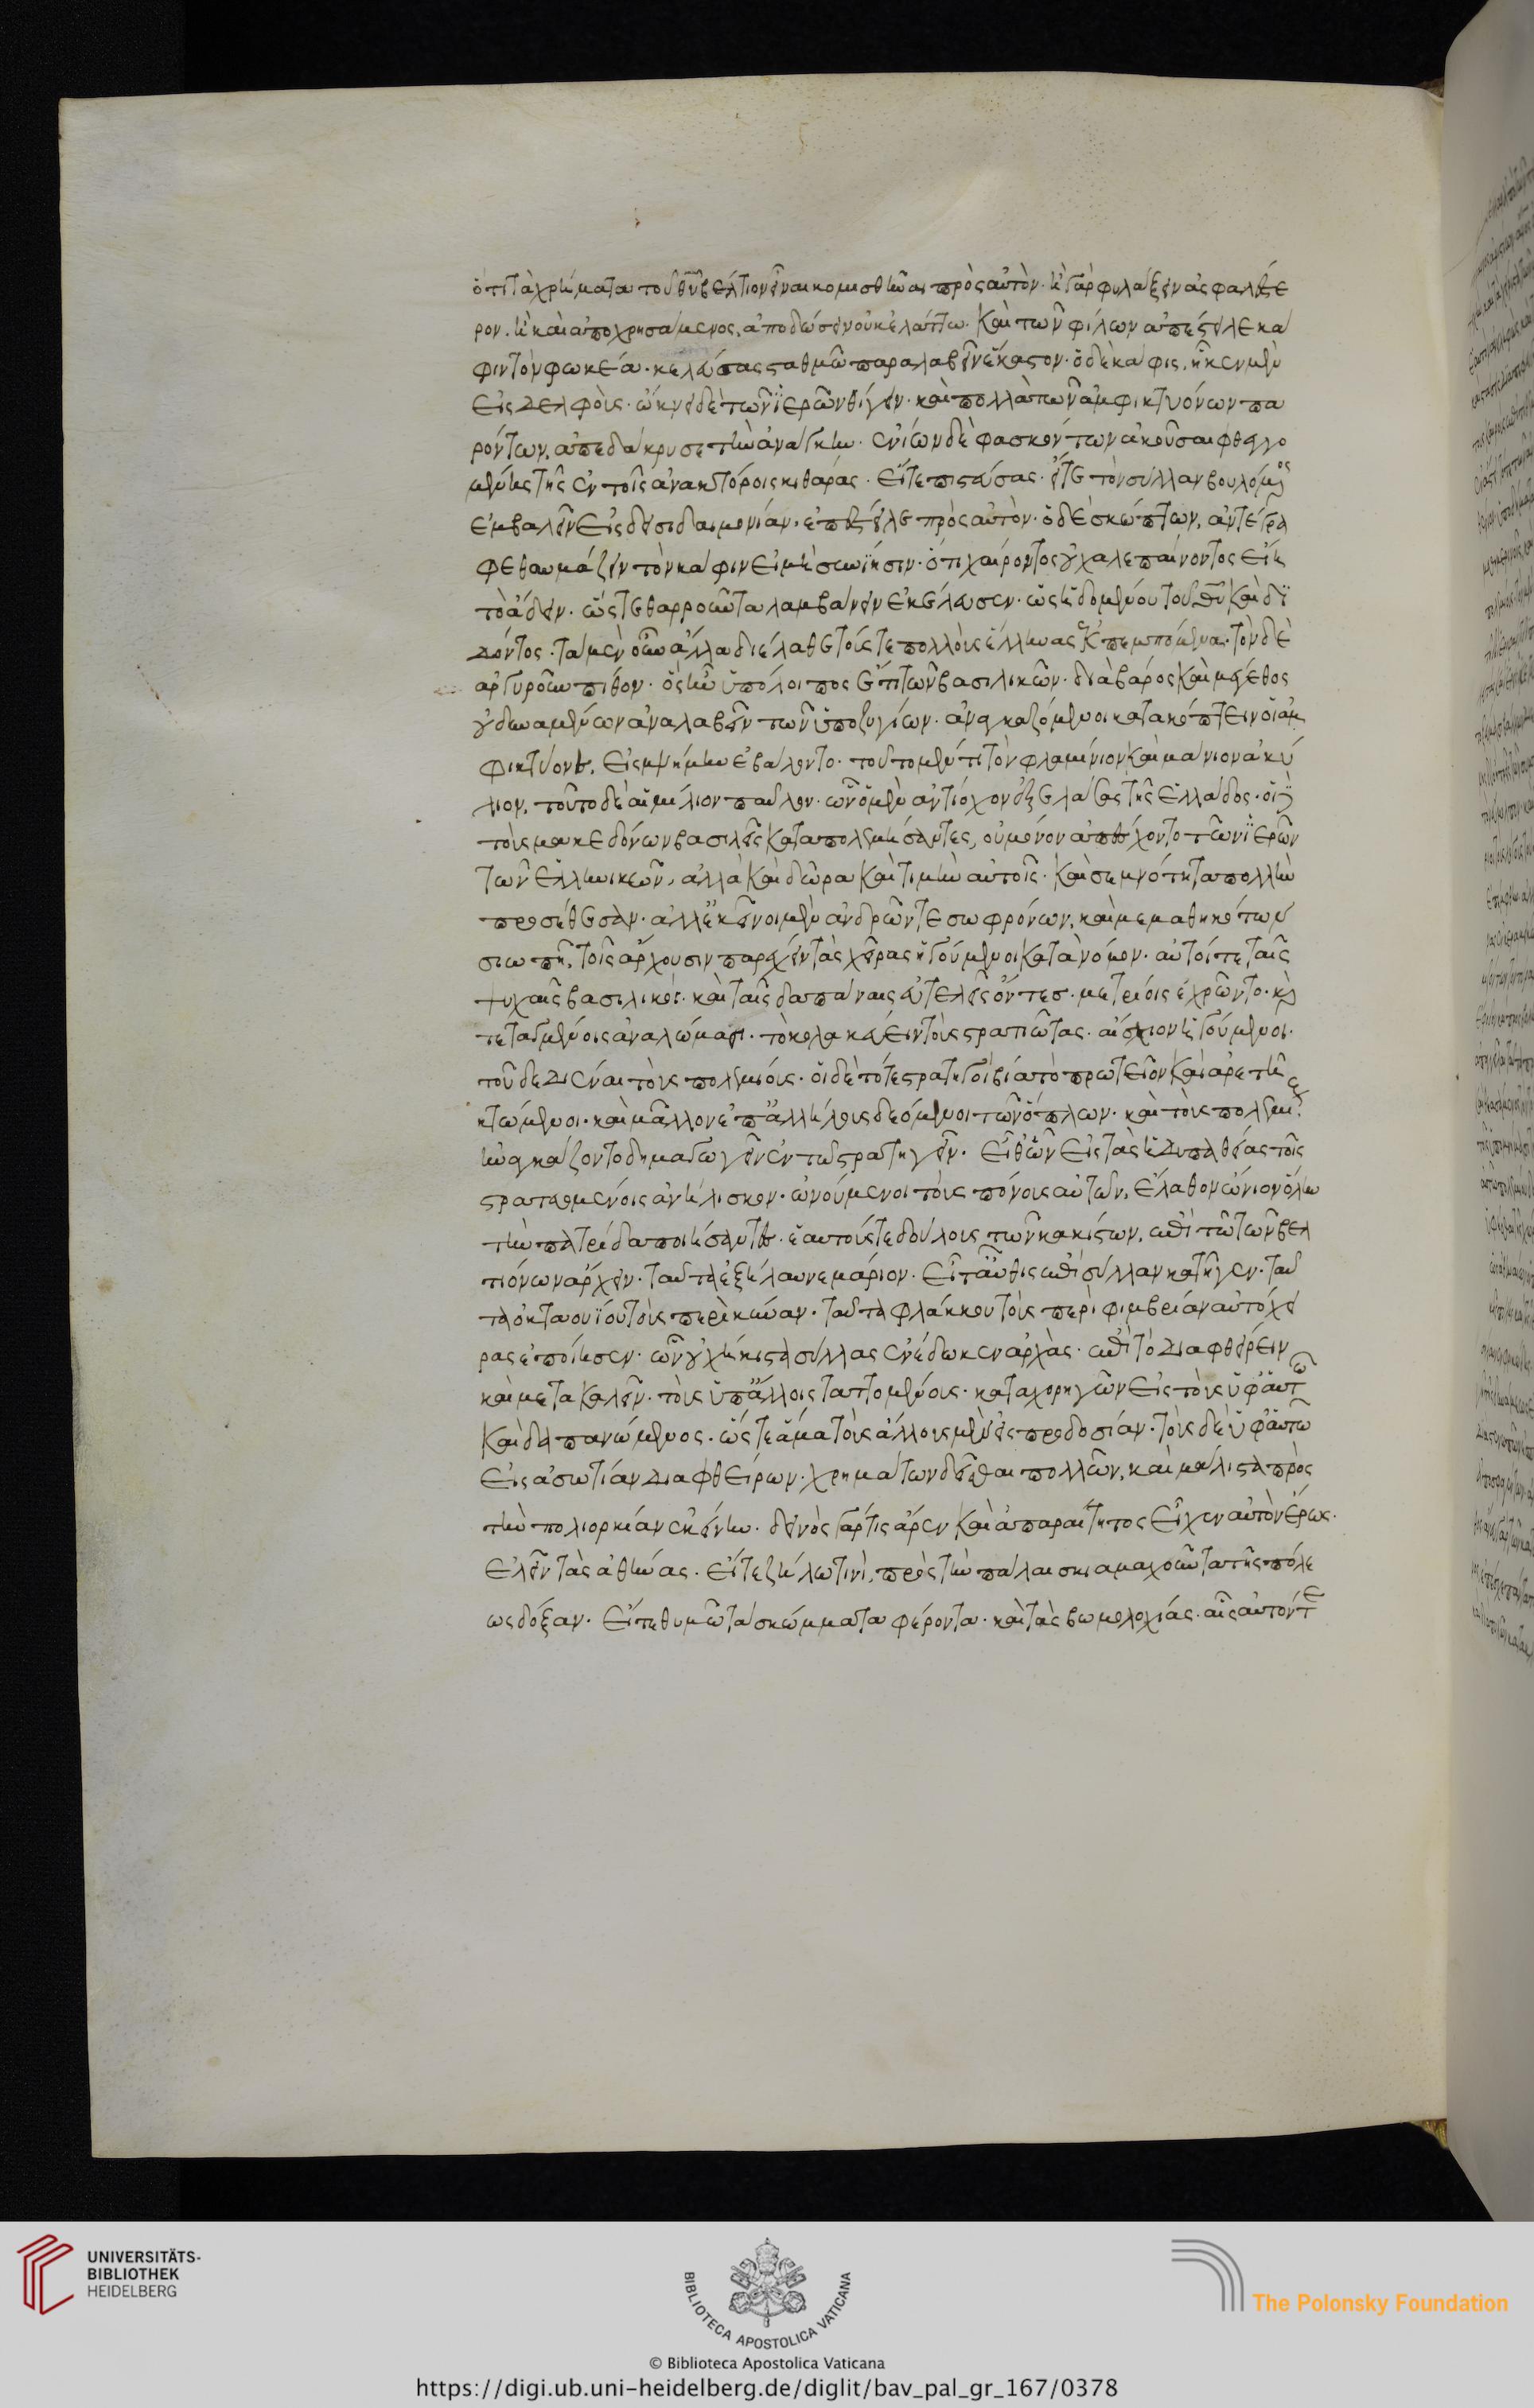 ὅτι τὰ χρήματα τοῦ θεοῦ βέλτιον εἶναι κομισθῆναι πρὸς αὐτόν· ἢ γὰρ φυλάξειν ἀσφαλέστε
ρον. ἢ καὶ ἀποχρησάμενος, ἀποδώσειν οὐκ ἐλάττω. καὶ τῶν φίλων ἀπέστειλε κά
φιν τὸν φωκέα. κελεύσας σταθμῶ παραλαβεῖν ἕκαστον. ὁ δὲ κάφις, ἧκεν μὲν
εἰς δελφούς. ὤκνει δὲ τῶν ἱερῶν θίγειν. καὶ πολλὰ τῶν ἀμφικτυόνων πα
ρόντων, ἀπεδάκρυσε τὴν ἀνάγκην. ἐνίων δὲ φασκόντων ἀκοῦσαι φθεγγο
μένης τῆς ἐν τοῖς ἀνακτόροις κιθάρας. εἴτε πιστεύσας. εἴτε τὸν σύλλαν βουλόμενος
ἐμβαλεῖν εἰς δεισιδαιμονίαν. ἐπέστειλε πρὸς αὐτόν. ὁ δὲ σκώπτων, ἀντέγρα
ψε θαυμάζειν τὸν κάφιν εἰ μὴ συνίησιν. ὅτι χαίροντος οὐ χαλεπαίνοντος εἴη
τὸ ἄδειν. ὥστε θαρροῦντα λαμβάνειν ἐκέλευσεν. ὡς ἡδομένου τοῦ θεοῦ καὶ δι
δόντος. τὰ μὲν οὖν ἄλλα διέλαθε τούς τε πολλοὺς ἕλληνας ἐκπεμπόμενα. τὸν δὲ
ἀργυροῦν πίθον. ὃς ἦν ὑπόλοιπος ἔτι τῶν βασιλικῶν. διὰ βάρος καὶ μέγεθος
οὐ δυναμένων ἀναλαβεῖν τῶν ὑποζυγίων. ἀναγκαζόμενοι κατακόπτειν οἱ ἀμ
φικτύονες, εἰς μνήμην ἐβάλοντο. τοῦτο μὲν τίτον φλαμίνιον καὶ μάνιον ἀκύ
λιον, τοῦτο δὲ αἰμίλιον παῦλον. ὧν ὁ μὲν ἀντίοχον ἐξελάσας τῆς ἑλλάδος. οἱ δὲ
τοὺς μακεδόνων βασιλεῖς καταπολεμήσαντες, οὐ μόνον ἀπέσχοντο τῶν ἱερῶν
τῶν ἑλληνικῶν, ἀλλὰ καὶ δῶρα καὶ τιμὴν αὐτοῖς. καὶ σεμνότητα πολλὴν
προσέθεσαν. ἀλλ' ἐκεῖνοι μὲν ἀνδρῶν τε σωφρόνων, καὶ μεμαθηκότων
σιωπῆ, τοῖς ἄρχουσιν παρέχειν τὰς χεῖρας ἡγούμενοι κατὰ νόμον. αὐτοί τε ταῖς
ψυχαῖς βασιλικοί. καὶ ταῖς δαπάναις εὐτελεῖς ὄντες. μετρίοις ἐχρῶντο. καὶ
τεταγμένοις ἀναλώμασι. τὸ κολακεύειν τοὺς στρατιώτας. αἴσχιον ἡγούμενοι.
τοῦ δεδιέναι τοὺς πολεμίους. οἱ δὲ τότε στρατηγοὶ βία τὸ πρωτεῖον καὶ ἀρετῆ
κτώμενοι. καὶ μᾶλλον ἐπ' ἀλλήλους δεόμενοι τῶν ὅπλων. καὶ τοὺς πολεμίους
ἠναγκάζοντο δημαγωγεῖν ἐν τῶ στρατηγεῖν. εἶθ' ὧν εἰς τὰς ἡδυπαθείας τοῖς
στρατευομένοις ἀνήλισκον. ὠνούμενοι τοὺς πόνους αὐτῶν, ἔλαθον ὤνιον ὅλην
τὴν πατρίδα ποιήσαντες. ἑαυτούς τε δούλους τῶν κακίστων, ἐπὶ τῶ τῶν βελ
τιόνων ἄρχειν. ταῦτα ἐξήλαυνε μάριον. εἶτ' αὖθις ἐπὶ σύλλαν κατῆγεν. ταῦ
τα ὀκταουΐου τοὺς περὶ κίνναν. ταῦτα φλάκκου τοὺς περὶ φιμβρίαν αὐτόχει
ρας ἐποίησεν. ὧν οὐχ ἥκιστα σύλλας ἐνέδωκεν ἀρχὰς. ἐπὶ τὸ διαφθείρειν
καὶ μετακαλεῖν. τοὺς ὑπ' ἄλλοις ταττομένους. καταχορηγῶν εἰς τοὺς ὑφ' αὑτῶ
καὶ δαπανώμενος. ὥστε ἅμα τοὺς ἄλλους μὲν εἰς προδοσίαν. τοὺς δὲ ὑφ' αὑτῶ
εἰς ἀσωτίαν διαφθείρων. χρημάτων δεῖσθαι πολλῶν, καὶ μάλιστα πρὸς
τὴν πολιορκίαν ἐκείνην. δεινὸς γάρ τις ἄρεν καὶ ἀπαραίτητος εἶχεν αὐτὸν ἔρως.
ἑλεῖν τὰς ἀθήνας. εἴτε ζήλω τινὶ, πρὸς τὴν πάλαι σκιαμαχοῦντα τῆς πόλε
ως δόξαν. εἴτε θυμῶ τὰ σκώμματα φέροντα. καὶ τὰς βωμολοχίας. αἷς αὐτόν τε
UNIVERSITÄTS-
BIBLIOTHEK
HEIDELBERG
BIBLIOTECA APOSTOLICA VATICANA
The Polonsky Foundation
© Biblioteca Apostolica Vaticana
https://digi.ub.uni-heidelberg.de/diglit/bav_pal_gr_167/0378